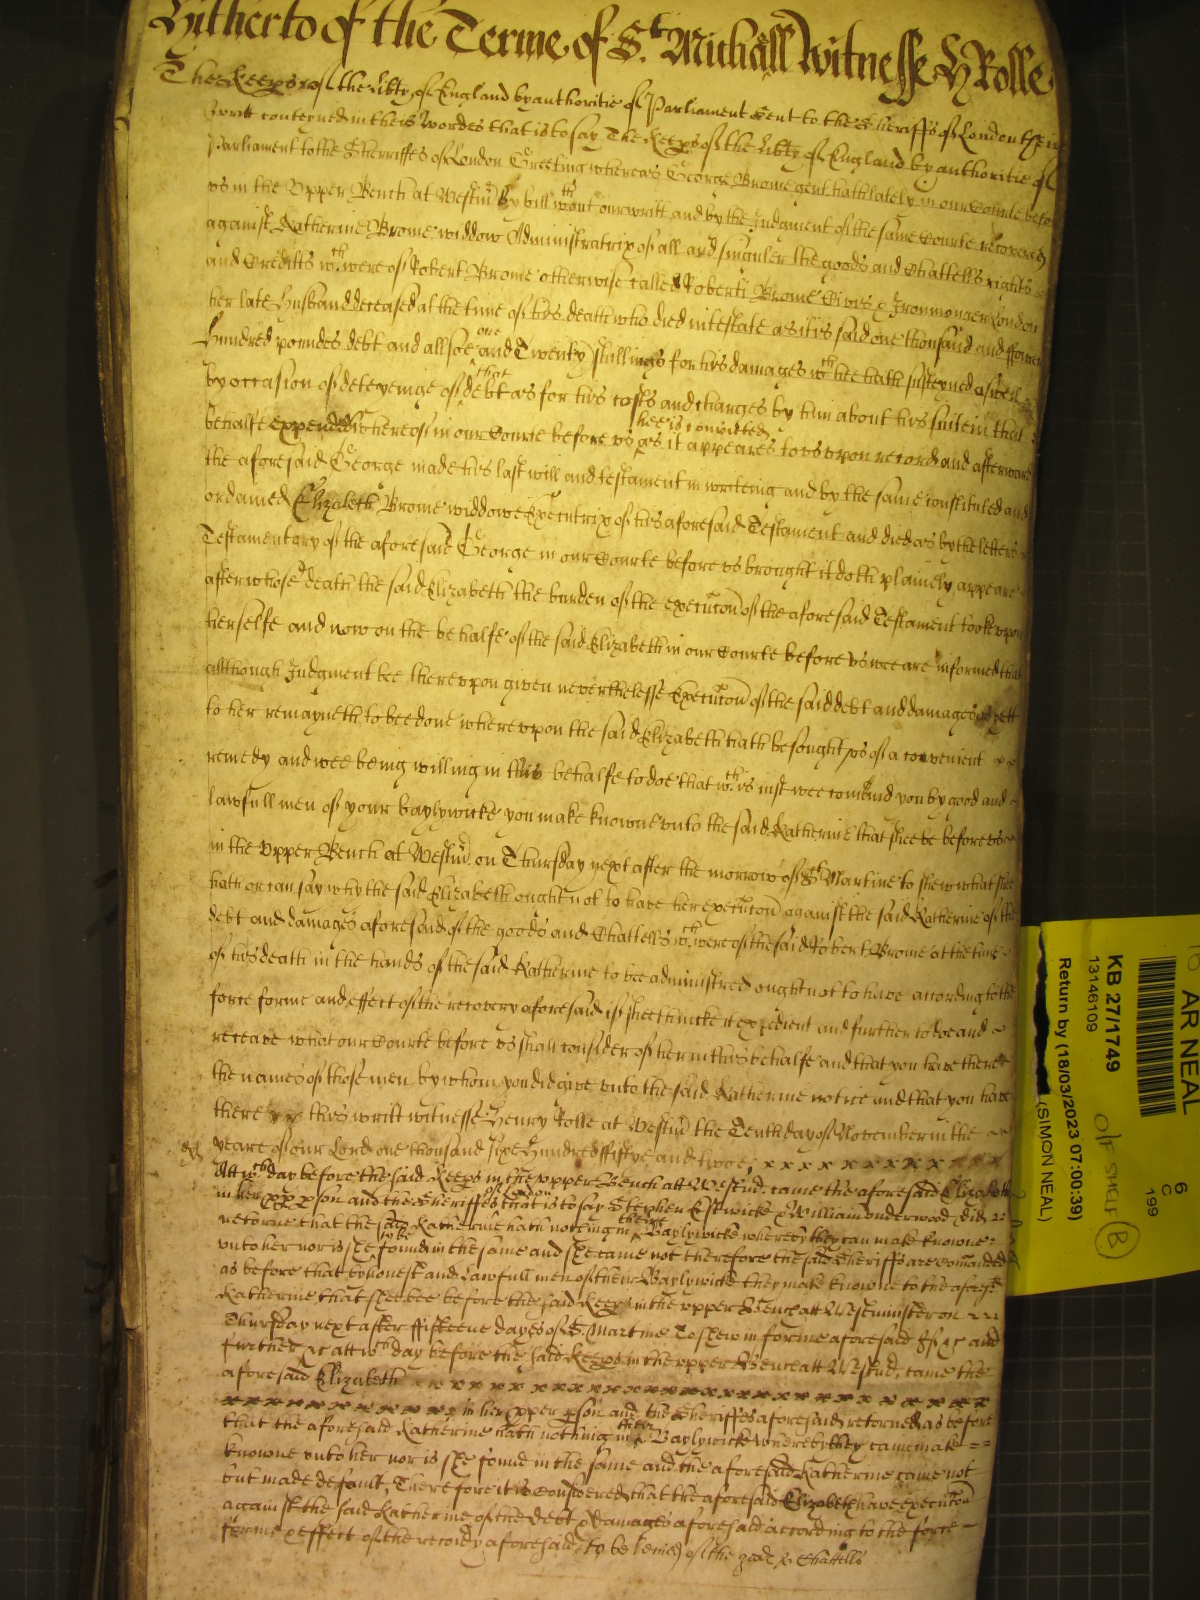 Hitherto of the Terme of St. Michaell Witnesse H Rolle
The Keeps of the libty of England by authoritie of Parliament Sent to the Sheriffs of London their
writt conteyned in theis wordes that is to say The Keeps of the libty of England by authoritie of
Parliament to the Sherriffes of London Greeting whereas George Brome gent hath lately in our Courte before
us in the Upper Bench at Westm by bill wthout our writt and by the Judgment of the same Courte recovered
against Katherine Brome widdow Administratrix of all and singuler the goods and Chattells rights
and Creditts wch were of Robert Brome otherwise called Roberti Brome Civis & Ironmonger London
her late Husband deceased at the tyme of his death who died intestate as it is said one thousand and
Hundred poundes debt and allsoe one and Twenty shillings for his damages wch hee hath susteyned aswell
by occasion of deteyeinge of that debt as for his costs and charges by him about his suite in that
behalfe expended whereof in our Courte before us hee is convicted as it appeares to us upon record and afterward
the aforesaid George made his last will and testament in writeing and by the same constituted and
ordained Elizabeth Brome widdowe Executrix of his aforesaid Testament and died as by the letters
Testamentory of the aforesaid George in our Courte before us brought it doth plainely appeare
after whose death the said Elizabeth the burden of the execucon of the aforesaid Testament tooke upon
herselfe and now on the behalfe of the said Elizabeth in our Courte before us wee are informed that
allthough Judgment bee thereupon given neverthelesse Execucon of the said debt and damages as yett
to her remayneth to bee done whereupon the said Elizabeth hath besought us of a convenient
remedy and wee being willing in this behalfe to doe that wch is just wee comaund you by good and
lawfull men of your baylywicke you make knowne unto the said Katherine that shee be before us
in the Upper Bench at Westm on Thursday next after the morrow of St Martine to shew what shee
hath or can say why the said Elizabeth ought not to have her execucon against the said Katherine of the
debt and damages aforesaid of the goods and Chattells wch were of the said Robert Brome at the time
of his death in the hands of the said Katherine to bee administred ought not to have according to the
force forme and effect of the recovery aforesaid if shee thincke it expedient and further to doe and
receave what our Courte before us shall consider of her in this behalfe and that you have there
the names of those men by whom you did give unto the said Katherine notice and that you have
there this writt witnesse Henry Rolle at Westm the Tenth day of November in the
yeare of our Lord one thousand sixe Hundred fiftye and twoe,
Att wch day before the said Keeps in the upper Bench att Westm. came the aforesaid Elizabeth
in her pper pson and the Sheriffes of London that is to say Stephen Estwicke & William Underwood did
retorne that the said Katherine hath nothing in their Baylywicke whereby they can make knowne
unto her nor is she to be found in the same and she came not therefore the said Sheriffs are comanded
as before that by honest and Lawfull men of their Baylywick they make knowne to the aforesd
Katherine that shee bee before the said Keeps in the upper Bench att Westminster on
Thursday next after fifteene dayes of St. Martine To shew in forme aforesaid if &c and
further &c att wch day before the said Keeps in the upper Bench att Westm. came the
aforesaid Elizabeth
in her pper pson and the Sheriffes aforesaid retorned as before
that the aforesaid Katherine hath nothing in their Baylywick whereby they can make
knowne unto her nor is she found in the same and the aforesaid Katherine came not
but made default, Therefore it is Considered that the aforesaid Elizabeth have execucon
against the said Katherine of the debt & damages aforesaid according to the force
forme & effect of the recovry aforesaid to be levied of the goods & Chattells
AR NEAL
6
C
199
KB 27/1749
13146109
Return by (18/03/2023 07:00:39)
(SIMON NEAL)
O/F SHELF
B